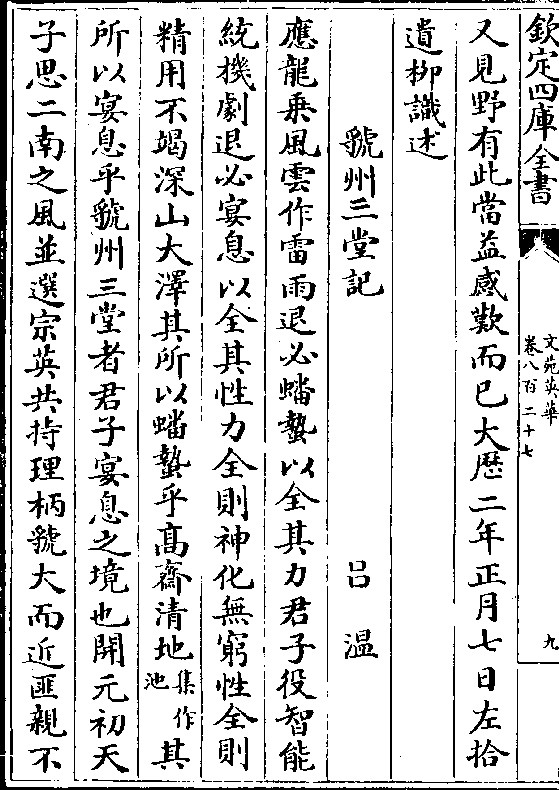 欽定四庫全書
文苑英華
卷八百二十七
九
又見野有此當益感歎而已大歴二年正月七日左拾
遺栁識述
虢州三堂記 吕温
應龍乗風雲作雷雨退必蟠蟄以全其力君子役智能
統機劇退必宴息以全其性力全則神化無窮性全則
精用不竭深山大澤其所以蟠蟄乎髙齋清地集作池其
所以宴息乎虢州三堂者君子宴息之境也開元初天
子思二南之風並選宗英共持理柄虢大而近匪親不